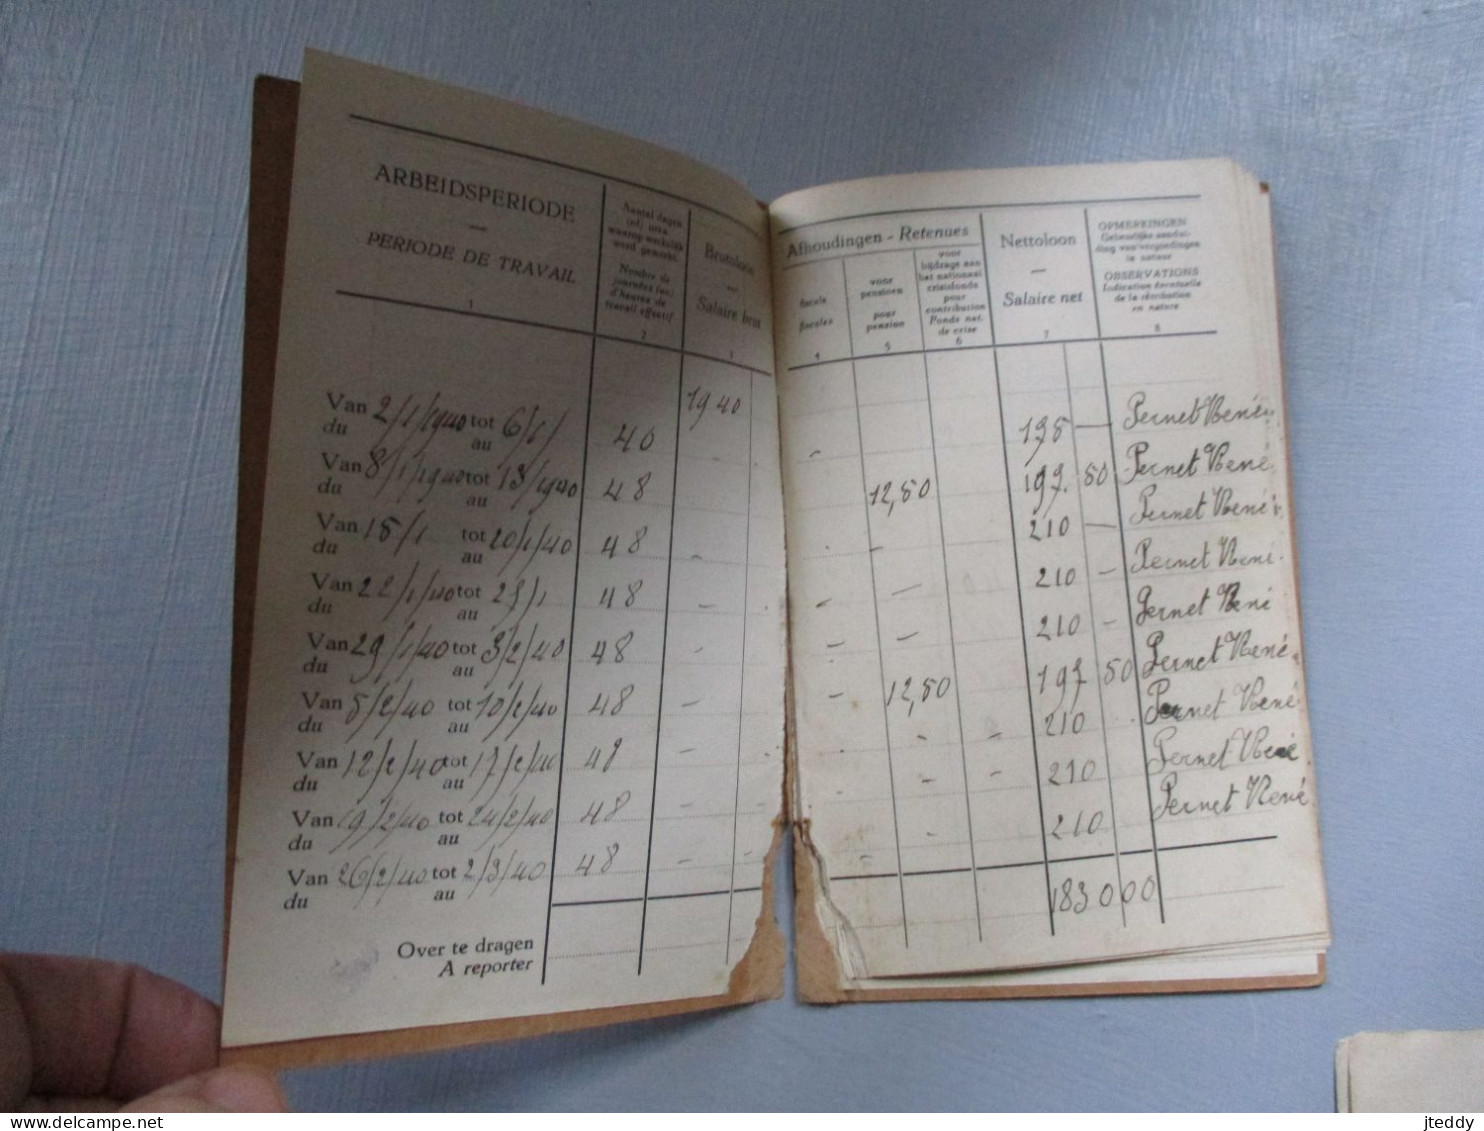 ARBEIDSPERIODE
PERIODE DE TRAVAIL
1
Aantal dagen
(of) uren
waarop werkelijk
werd gewerkt.
Nombre de
journées (ou)
d'heures de
travail effectif
2
Brutoloon
Salaire brut
3
1940
Van 2/1/1940 tot 6/1/
du au
40
Van 8/1/1940 tot 13/1940
du au
48
Van 15/1 tot 20/1/40
du au
48
Van 22/1/40 tot 27/1
du au
48
Van 29/1/40 tot 3/2/40
du au
48
Van 5/2/40 tot 10/2/40
du au
48
Van 12/2/40 tot 17/2/40
du au
48
Van 19/2/40 tot 24/2/40
du au
48
Van 26/2/40 tot 2/3/40
du au
48
Over te dragen
A reporter
Afhoudingen - Retenues
fiscale
fiscales
4
voor
pensioen
pour
pension
5
voor
bijdrage aan
het nationaal
crisisfonds
pour
contribution
Fonds nat.
de crise
6
Nettoloon
Salaire net
7
OPMERKINGEN
Gebeurlijke aandui-
ding van vergoedingen
in natuur
OBSERVATIONS
Indication éventuelle
de la rétribution
en nature
8
175 — Pernet René
12,50 197. 50 Pernet René
210 — Pernet René
210 - Pernet René
210 - Pernet René
12,50 197 50 Pernet René
210 Pernet René
210 Pernet René
210 Pernet René
1830 00
jteddy
delcampe.net